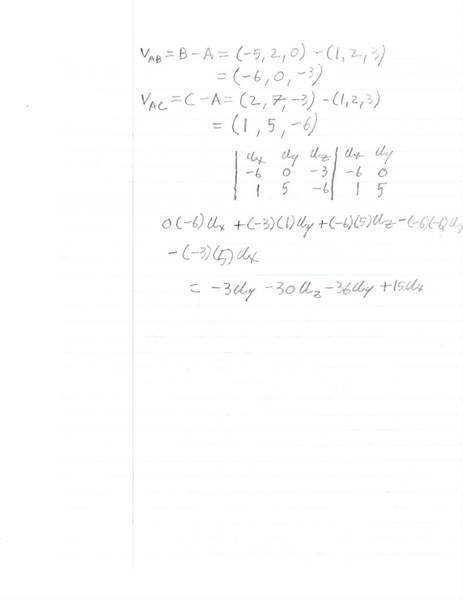 V_AB = B - A = (-5, 2, 0) - (1, 2, 3)
= (-6, 0, -3)
V_AC = C - A = (2, 7, -3) - (1, 2, 3)
= (1, 5, -6)
| u_x u_y u_z | u_x u_y
| -6 0 -3 | -6 0
| 1 5 -6 | 1 5
0(-6)u_x + (-3)(1)u_y + (-6)(5)u_z - (-6)(-6)u_y
- (-3)(5)u_x
= -3u_y - 30u_z - 36u_y + 15u_x